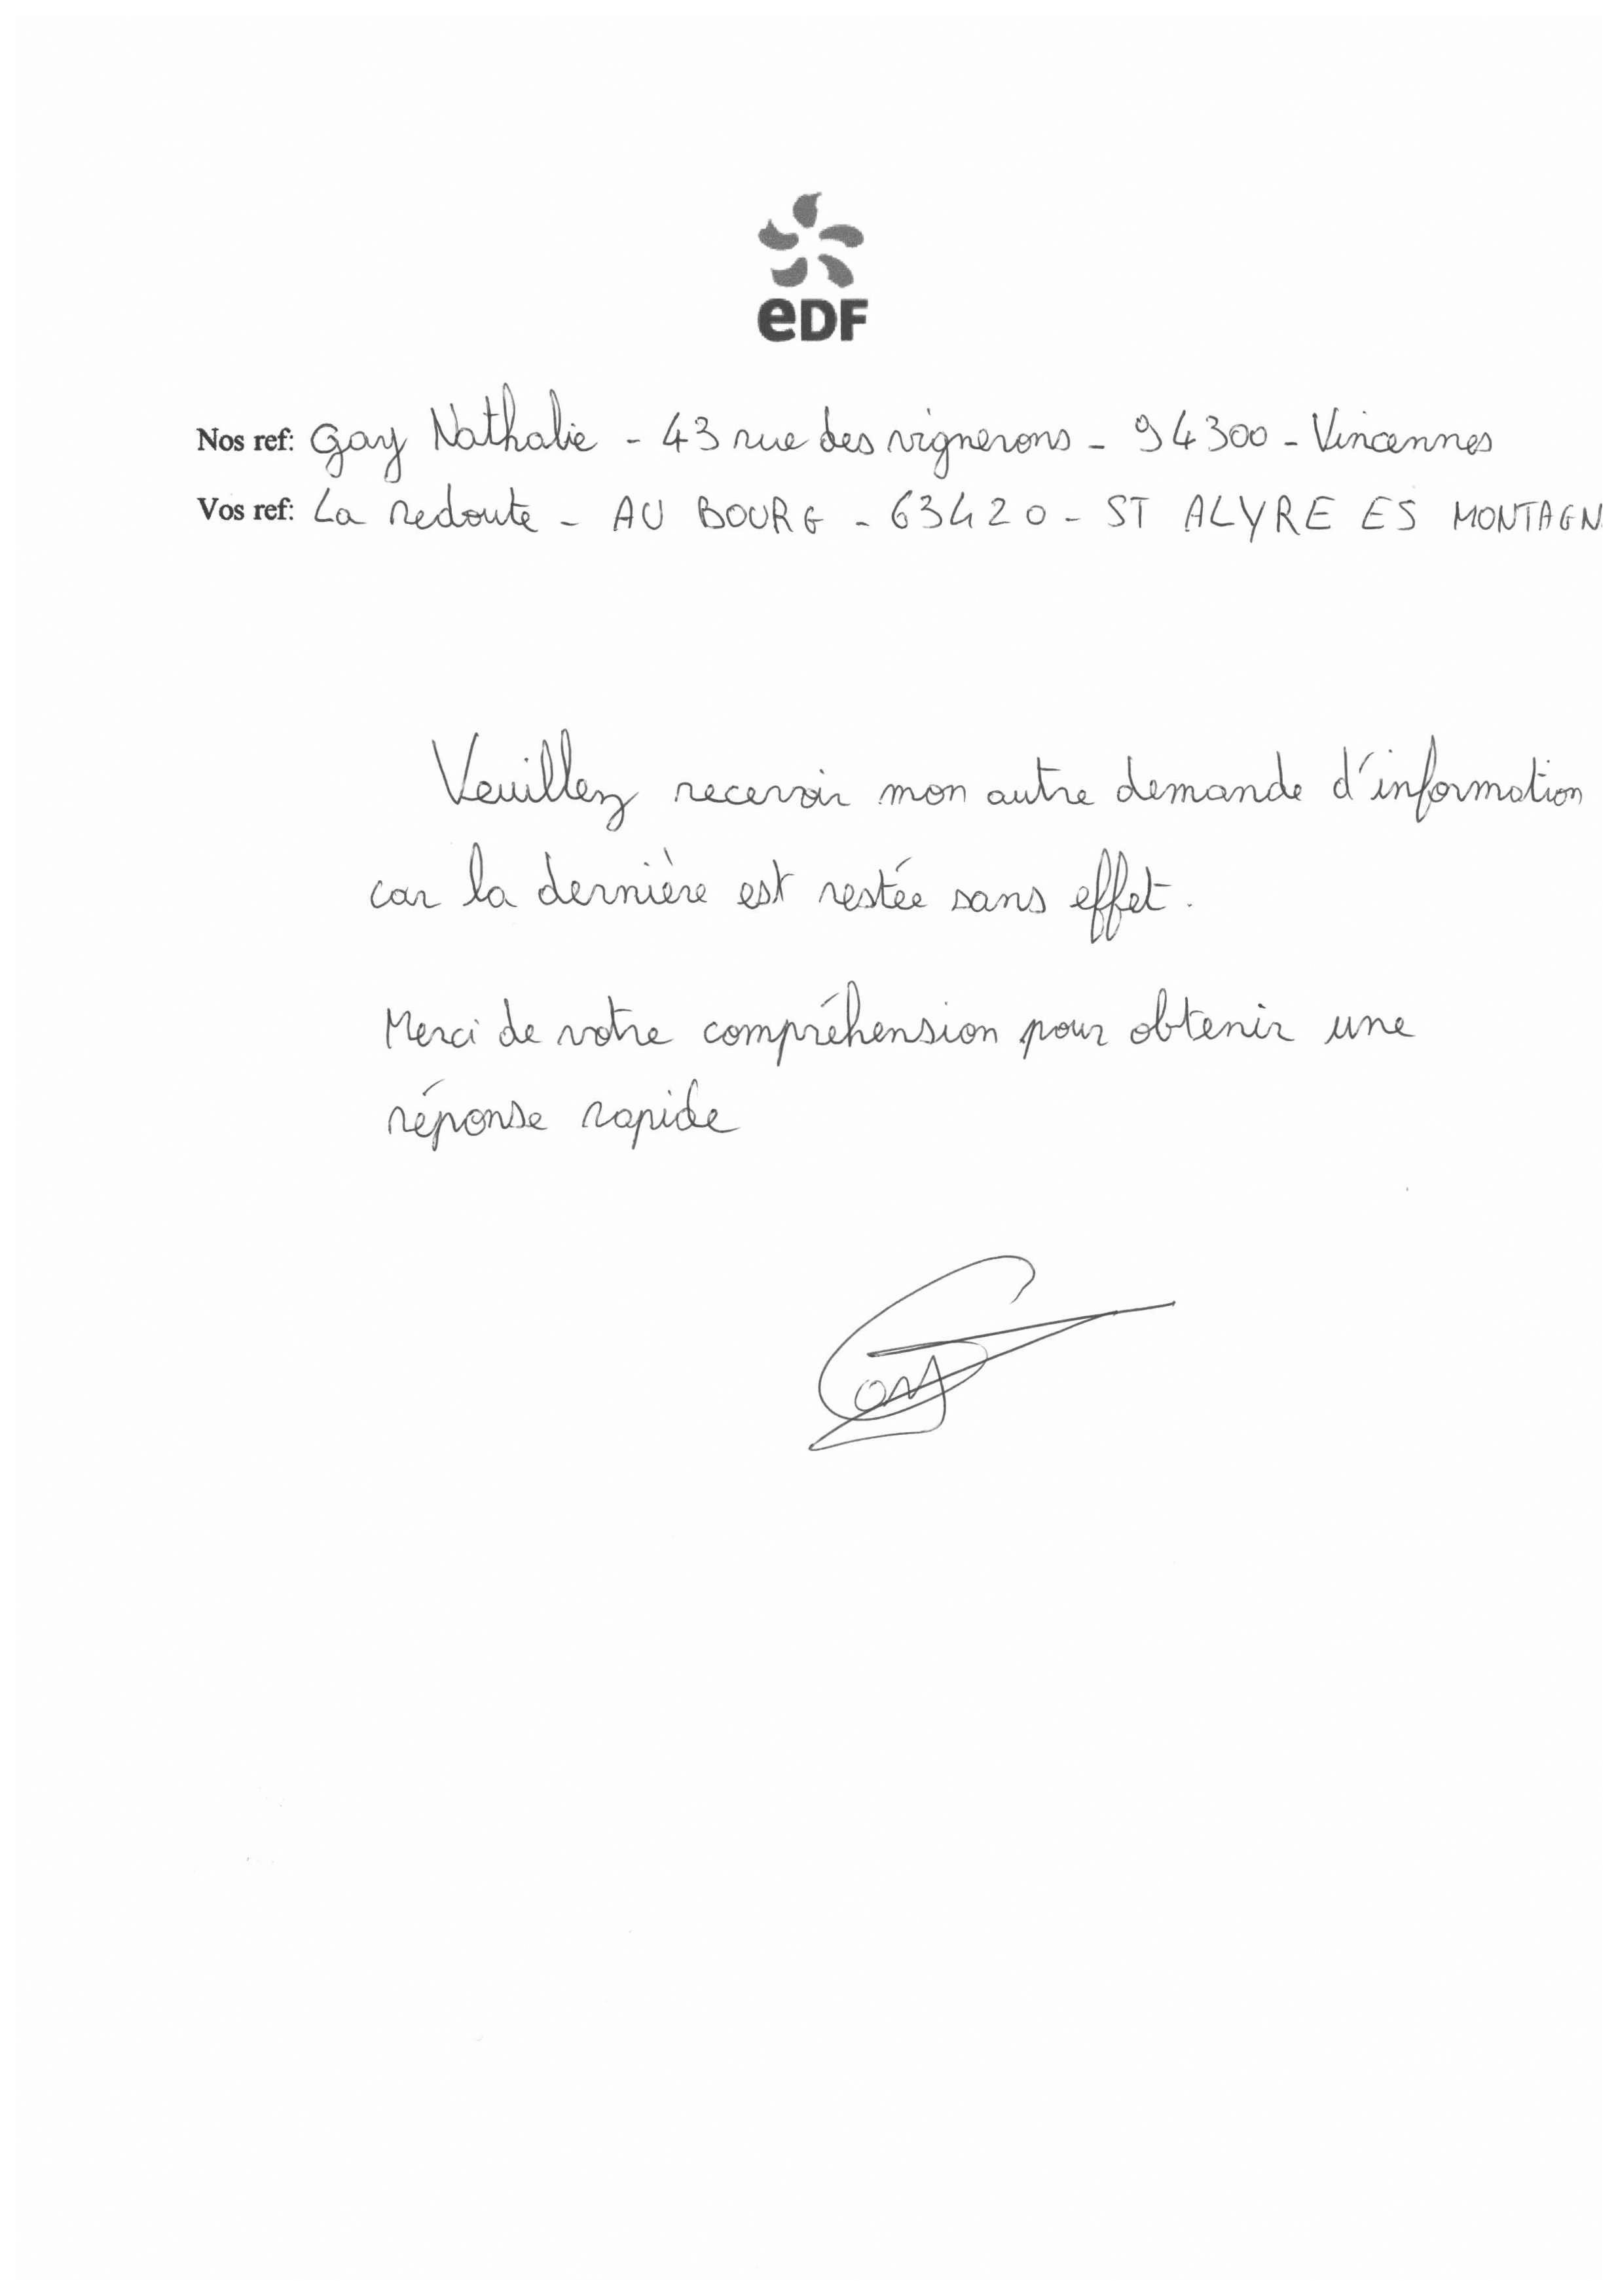 eDF
Nos ref: Gay Nathalie - 43 rue des vignerons - 94300 - Vincennes
Vos ref: La redoute - AU BOURG - 63420 - ST ALYRE ES MONTAGN
Veuillez recevoir mon autre demande d'information
car la dernière est restée sans effet.
Merci de votre compréhension pour obtenir une
réponse rapide
Gay